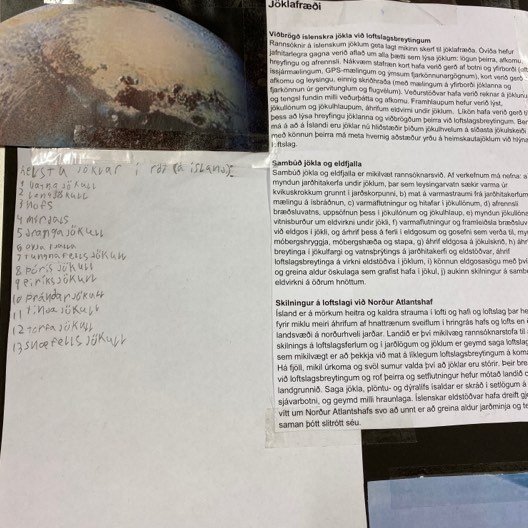 Jöklafræði
Viðbrögð íslenskra jökla við loftslagsbreytingum
Rannsóknir á íslenskum jöklum geta lagt mikinn skerf til jöklafræða. Óvíða hefur
jafnítarlegra gagna verið aflað um alla þætti sem lýsa jöklum: lögun þeirra, afkomu,
hreyfingu og afrennsli. Nákvæm stafræn kort hafa verið gerð af botni og yfirborði (með
íssjármælingum, GPS-mælingum og ýmsum fjarkönnunargögnum), kort verið gerð
afkomu og leysingu, einnig skriðhraða (með mælingum á yfirborði jöklarina og
fjarkönnun úr gervitunglum og flugvélum). Veðurstöðvar hafa verið reknar á jöklunu
og tengsl fundin milli veðurþátta og afkomu. Framhlaupum hefur verið lýst,
jökullónum og jökulhlaupum, áhrifum eldvirkni undir jöklum. Líkön hafa verið
þess að lýsa hreyfingu jöklarina og viðbrögðum þeirra við loftslagsbreytingum. Ben
má á að á Íslandi eru jöklar nú hliðstæðir þíðum jökulhvelum á síðasta jökulskeiði
með könnun þeirra má meta hvernig aðstæður yrðu á heimskautajöklum við hlýna
loftslag.
Sambúð jökla og eldfjalla
Sambúð jökla og eldfjalla er mikilvæt rannsóknarsvið. Af verkefnum má nefna: a
myndun jarðhitakerfa undir jöklum, þar sem leysingarvatn sækir varma úr
kvikuskrokkum grunnt í jarðskorpunni, b) mat á varmastraumi frá jarðhitakerfum
mæling á ísbráðnun, c) varmaflutningur og hitafar í jökullónum, d) afrennsli
bræðsluvatns, uppsöfnun þess í jökullónum og jökulhlaup, e) myndun jökullóna
vitnisburður um eldvirkni undir jökli, f) varmaflutningur og framleiðsla bræðsluv
við eldgos í jökli, og áhrif þess á ferli í eldgosum og gosefni sem verða til, my
móbergshryggja, móbergshæða og stapa, g) áhrif eldgosa á jökulskerið, h) áhr
breytinga í jökulfargi og vatnsþrýtings á jarðhitakerfi og eldstöðvar, i) áhrif
loftslagsbreytinga á virkni eldstöðva í jöklum, i) könnun eldgosasögu með því
og greina aldur öskulaga sem grafist hafa í jökul, j) aukinn skilningur á samb
eldvirkni á öðrum hnöttum.
Skilningur á loftslagi við Norður Atlantshaf
Ísland er á mörkum heitra og kaldra strauma í lofti og hafi og loftslag þar he
fyrir miklu meiri áhrifum af hnattrænum sveiflum í hringrás hafs og lofts en ö
landsvæði á norðurhveli jarðar. Landið er því mikilvæg rannsóknarstofa til
skilnings á loftslagsferlum og í jarðlögum og jöklum er geymd saga loftslag
sem mikilvægt er að þekkja við mat á líklegum loftslagsbreytingum á koma
Há fjöll, mikil úrkoma og svöl sumur valda því að jöklar eru stórir. Þeir bre
við loftslagsbreytingum og rof þeirra og setflutningur hefur mótað landið c
landgrunnið. Saga jökla, plöntu- og dýralífs ísaldar er skráð í setlögum á
sjávarbotni, og geymd milli hraunlaga. Íslenskar eldstöðvar hafa dreift gj
vítt um Norður Atlantshafs svo að unnt er að greina aldur jarðminja og te
saman þótt slitrótt séu.
Helstu jöklar í röð (á íslandi):
1 Vatnajökull
2 Langjökull
3 hofs
4 mýrdals
5 drangajökull
7 tungnafellsjökull
8 þórisjökull
9 eiríksjökull
10 þrándarjökull
11 tindajökull
12 torfajökull
13 snæfellsjökull